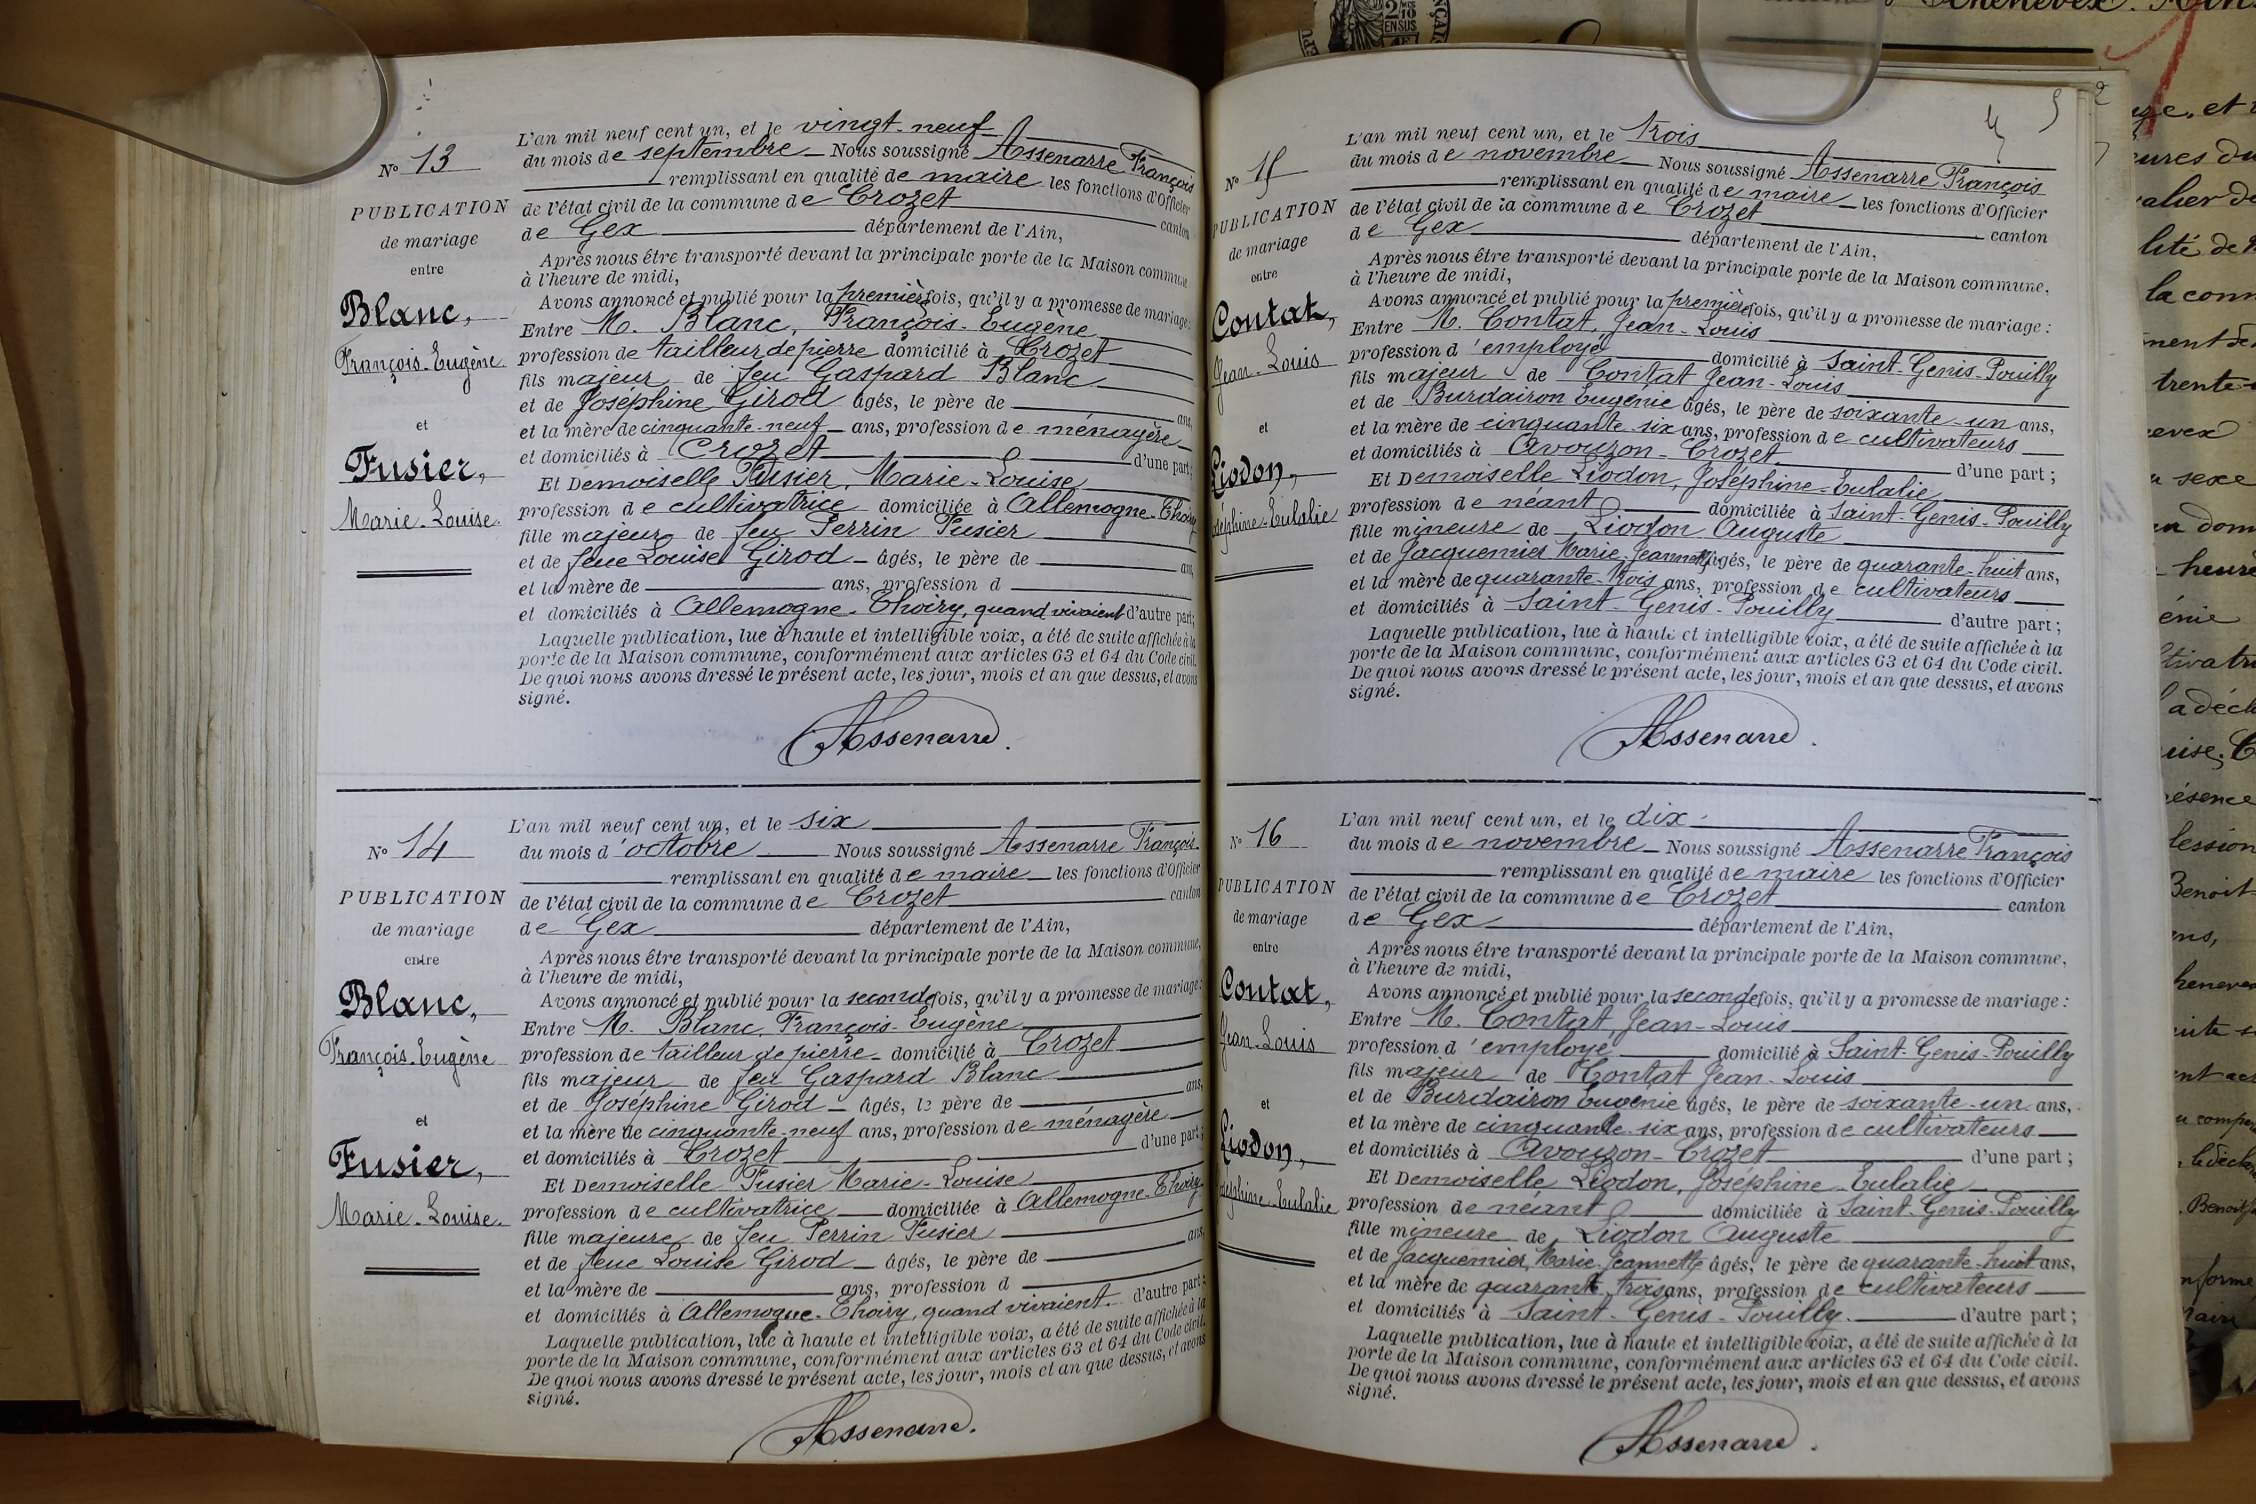 L'an mil neuf cent un, et le vingt-neuf
Nº 13
du mois de septembre Nous soussigné Assenarre François
remplissant en qualité de maire les fonctions d'Officier
PUBLICATION
de mariage
entre
de l'état civil de la commune de Crozet canton
de Gex département de l'Ain,
Après nous être transporté devant la principale porte de la Maison commune
à l'heure de midi,
Avons annoncé et publié pour la première fois, qu'il y a promesse de mariage:
Blanc,
François-Eugène
et
Fusier,
Marie-Louise.
Entre M. Blanc, François-Eugène
profession de tailleur de pierre domicilié à Crozet
fils majeur de feu Gaspard Blanc
et de Joséphine Girod âgés, le père de ans,
et la mère de cinquante-neuf ans, profession de ménagère
et domiciliés à Crozet d'une part;
Et Demoiselle Fusier, Marie-Louise
profession de cultivatrice domiciliée à Allemogne-Thoiry
fille majeure de feu Perrin Fusier
et de feue Louise Girod âgés, le père de ans,
et la mère de ans, profession d
et domiciliés à Allemogne-Thoiry, quand vivaient d'autre part;
Laquelle publication, lue à haute et intelligible voix, a été de suite affichée à la
porte de la Maison commune, conformément aux articles 63 et 64 du Code civil.
De quoi nous avons dressé le présent acte, les jour, mois et an que dessus, et avons
signé.
Assenarre.
L'an mil neuf cent un, et le six
Nº 14
du mois d'octobre Nous soussigné Assenarre François
remplissant en qualité de maire les fonctions d'Officier
PUBLICATION
de mariage
entre
de l'état civil de la commune de Crozet canton
de Gex département de l'Ain,
Après nous être transporté devant la principale porte de la Maison commune,
à l'heure de midi,
Avons annoncé et publié pour la seconde fois, qu'il y a promesse de mariage:
Blanc,
François-Eugène
et
Fusier,
Marie-Louise.
Entre M. Blanc, François-Eugène
profession de tailleur de pierre domicilié à Crozet
fils majeur de feu Gaspard Blanc
et de Joséphine Girod âgés, le père de ans,
et la mère de cinquante-neuf ans, profession de ménagère
et domiciliés à Crozet d'une part;
Et Demoiselle Fusier Marie-Louise
profession de cultivatrice domiciliée à Allemogne-Thoiry
fille majeure de feu Perrin Fusier
et de feue Louise Girod âgés, le père de ans,
et la mère de ans, profession d
et domiciliés à Allemogne-Thoiry, quand vivaient d'autre part;
Laquelle publication, lue à haute et intelligible voix, a été de suite affichée à la
porte de la Maison commune, conformément aux articles 63 et 64 du Code civil.
De quoi nous avons dressé le présent acte, les jour, mois et an que dessus, et avons
signé.
Assenarre.
L'an mil neuf cent un, et le trois
Nº 15
du mois de novembre Nous soussigné Assenarre François
remplissant en qualité de maire les fonctions d'Officier
PUBLICATION
de mariage
entre
de l'état civil de la commune de Crozet canton
de Gex département de l'Ain,
Après nous être transporté devant la principale porte de la Maison commune,
à l'heure de midi,
Avons annoncé et publié pour la première fois, qu'il y a promesse de mariage:
Contat,
Jean-Louis
et
Liodon,
Joséphine-Eulalie
Entre M. Contat, Jean-Louis
profession d'employé domicilié à Saint-Genis-Pouilly
fils majeur de Contat Jean-Louis
et de Burdairon Eugénie âgés, le père de soixante-un ans,
et la mère de cinquante-six ans, profession de cultivateurs
et domiciliés à Avouzon-Crozet d'une part;
Et Demoiselle Liodon, Joséphine-Eulalie
profession de néant domiciliée à Saint-Genis-Pouilly
fille mineure de Liodon Auguste
et de Jacquemier Marie-Jeannette âgés, le père de quarante-huit ans,
et la mère de quarante-trois ans, profession de cultivateurs
et domiciliés à Saint-Genis-Pouilly d'autre part;
Laquelle publication, lue à haute et intelligible voix, a été de suite affichée à la
porte de la Maison commune, conformément aux articles 63 et 64 du Code civil.
De quoi nous avons dressé le présent acte, les jour, mois et an que dessus, et avons
signé.
Assenarre.
L'an mil neuf cent un, et le dix
Nº 16
du mois de novembre Nous soussigné Assenarre François
remplissant en qualité de maire les fonctions d'Officier
PUBLICATION
de mariage
entre
de l'état civil de la commune de Crozet canton
de Gex département de l'Ain,
Après nous être transporté devant la principale porte de la Maison commune,
à l'heure de midi,
Avons annoncé et publié pour la seconde fois, qu'il y a promesse de mariage:
Contat,
Jean-Louis
et
Liodon,
Joséphine-Eulalie
Entre M. Contat, Jean-Louis
profession d'employé domicilié à Saint-Genis-Pouilly
fils majeur de Contat Jean-Louis
et de Burdairon Eugénie âgés, le père de soixante-un ans,
et la mère de cinquante-six ans, profession de cultivateurs
et domiciliés à Avouzon-Crozet d'une part;
Et Demoiselle Liodon, Joséphine-Eulalie
profession de néant domiciliée à Saint-Genis-Pouilly
fille mineure de Liodon Auguste
et de Jacquemier, Marie-Jeannette âgés, le père de quarante-huit ans,
et la mère de quarante-trois ans, profession de cultivateurs
et domiciliés à Saint-Genis-Pouilly. d'autre part;
Laquelle publication, lue à haute et intelligible voix, a été de suite affichée à la
porte de la Maison commune, conformément aux articles 63 et 64 du Code civil.
De quoi nous avons dressé le présent acte, les jour, mois et an que dessus, et avons
signé.
Assenarre.